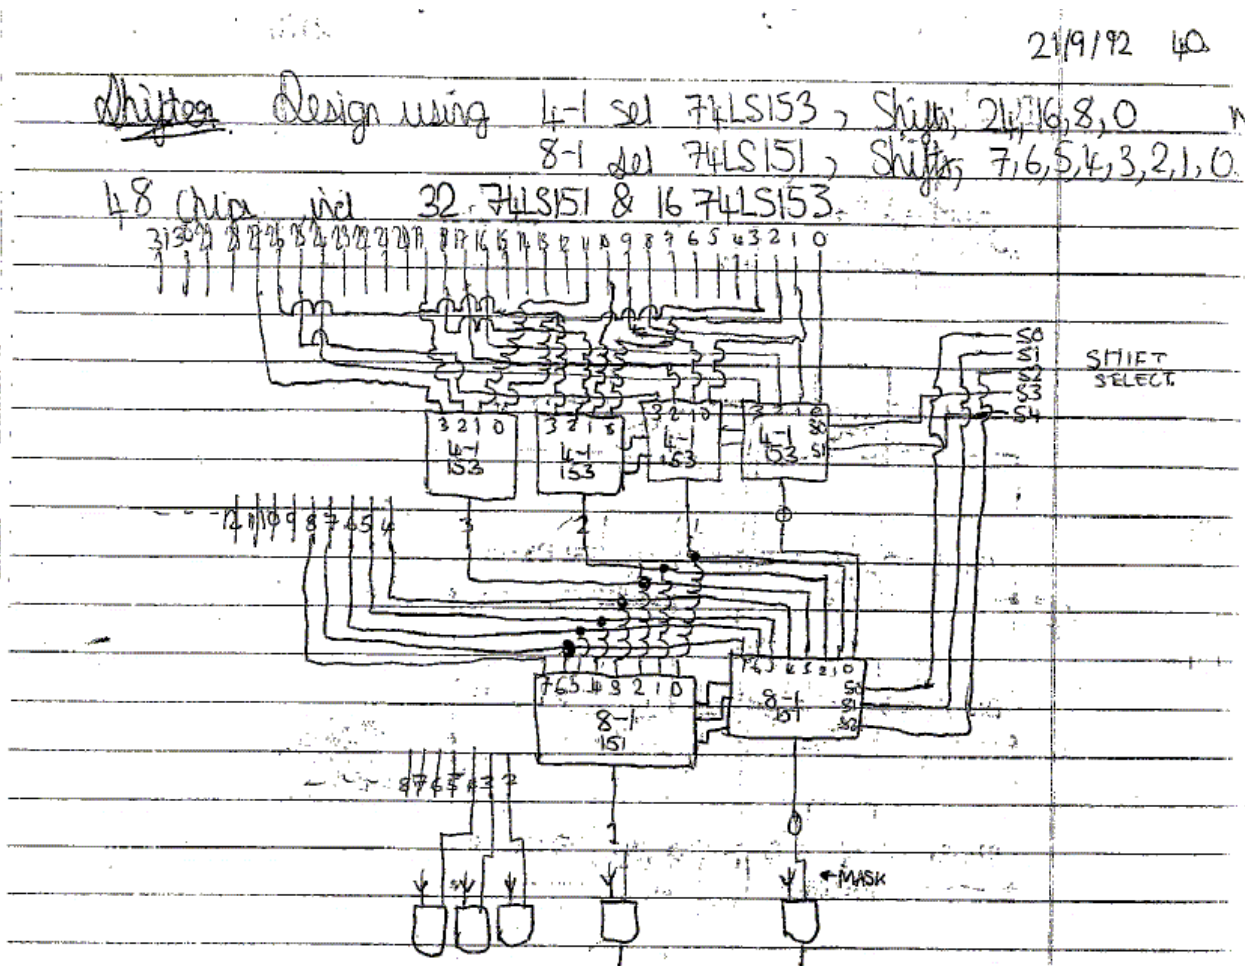 21/9/92 40
Shifter Design using 4-1 sel 74LS153, Shifts, 24,16,8,0
8-1 sel 74LS151, Shifts, 7,6,5,4,3,2,1,0
48 Chips incl 32 74LS151 & 16 74LS153
31 30 29 28 27 26 25 24 23 22 21 20 19 18 17 16 15 14 13 12 11 10 9 8 7 6 5 4 3 2 1 0
S0
S1
SHIFT
S2
SELECT
S3
S4
3 2 1 0
3 2 1 0
3 2 1 0
3 2 1 0
4-1
153
4-1
153
4-1
153
4-1
153
S0
S1
12 11 10 9 8 7 6 5 4
3
2
1
0
7 6 5 4 3 2 1 0
7 6 5 4 3 2 1 0
8-1
151
8-1
151
S0
S1
S2
8 7 6 5 4 3 2
1
0
←MASK